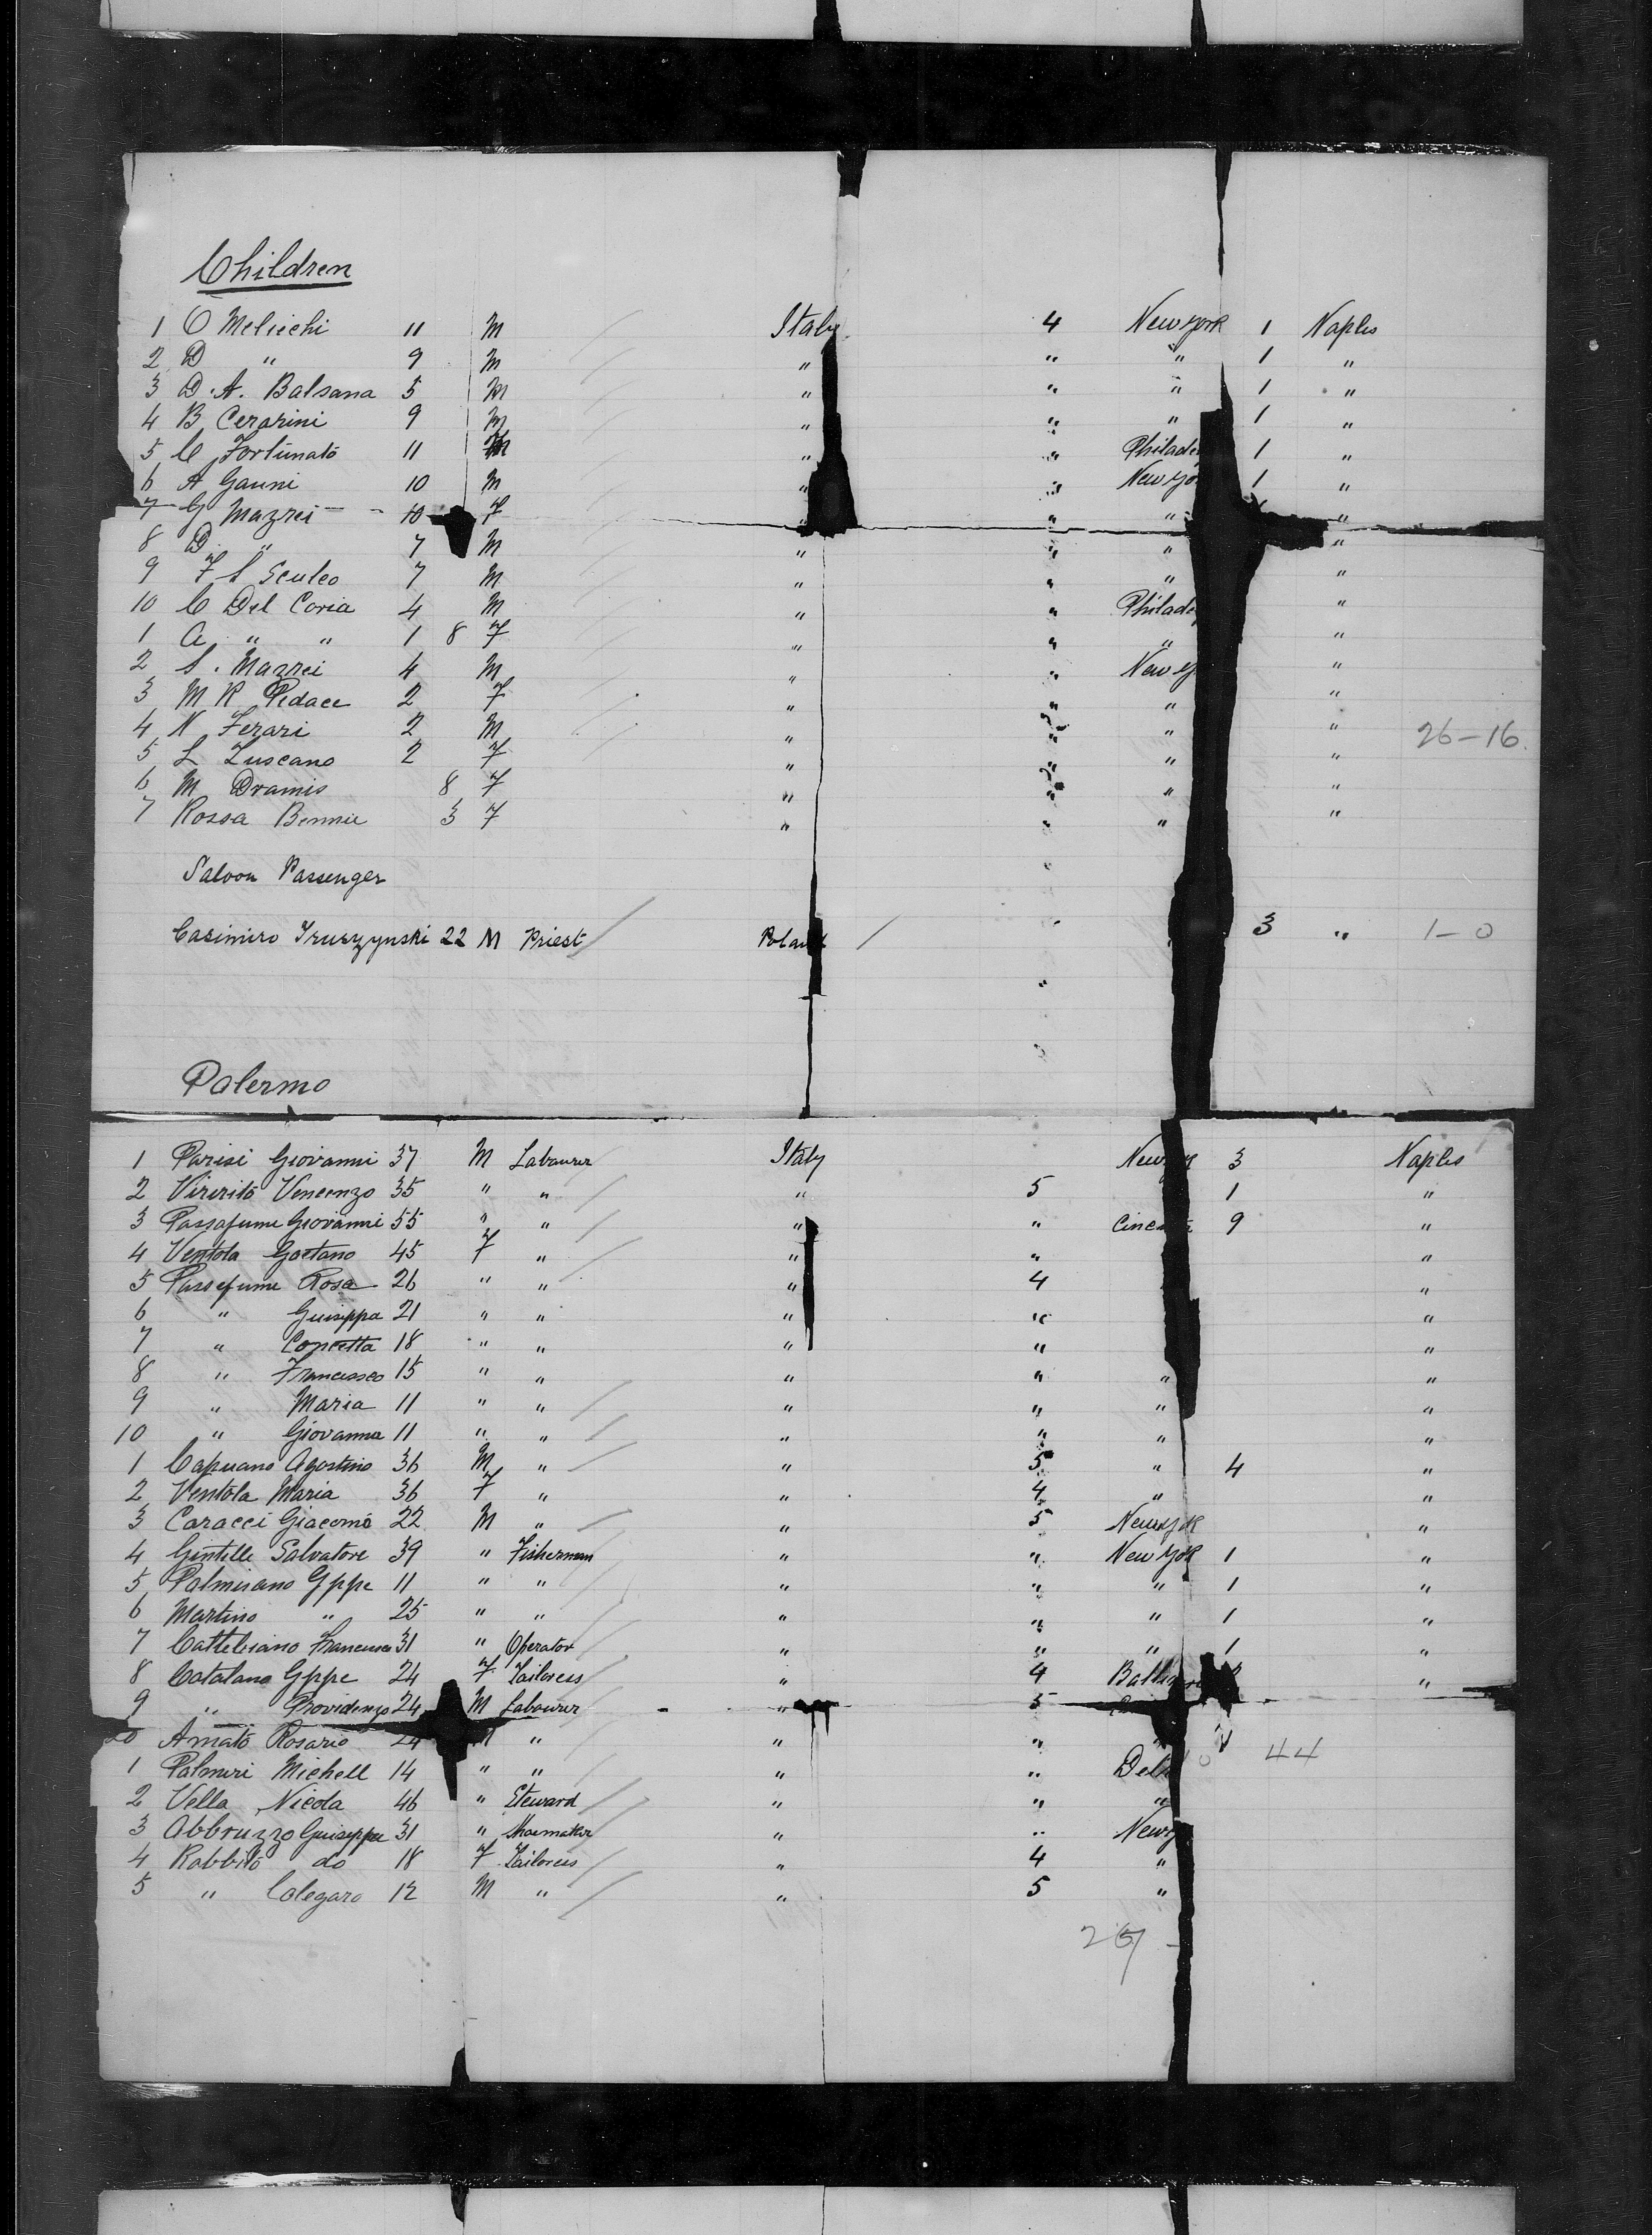 Children
1 O Meliechi 11 M Italy 4 New York 1 Naples
2 D " 9 M " " " 1 "
3 D. A. Balsana 5 M " " " 1 "
4 B Cerarini 9 M " " " 1 "
5 C Fortunato 11 M " " Philade 1 "
6 A Gauni 10 M " " New Yo 1 "
7 G Mazrei 10 F " " " "
8 D " 7 M " " " "
9 F S Sculco 7 M " " " "
10 C Del Coria 4 M " " Philade "
1 A " " 1 8 F " " " "
2 S. Mazrei 4 M " " New Y "
3 M R Pedace 2 F " " " "
4 N Ferari 2 M " " " " 26-16
5 L Luscano 2 F " " " "
6 M Dramis 8 F " " " "
7 Rossa Bennie 3 F " " " "
Saloon Passenger
Casimiro Iruszynski 22 M Priest Poland 3 " 1-0
Palermo
1 Parisi Giovanni 37 M Labourer Italy New 3 Naples
2 Viririto Vencenzo 35 " " " 5 1 "
3 Passafume Giovanni 55 " " " " Cinc 9 "
4 Ventola Gaetano 45 F " " " "
5 Passefume Rosa 26 " " " 4 "
6 " Guiseppa 21 " " " " "
7 " Concetta 18 " " " " "
8 " Francesseo 15 " " " " " "
9 " Maria 11 " " " " " "
10 " Giovanna 11 " " " " " "
1 Capuano Agostino 36 M " " 5 " 4 "
2 Ventola Maria 36 F " " 4 " "
3 Caracci Giacomo 22 M " " 5 New York "
4 Gintelle Salvatore 39 " Fisherman " " New York 1 "
5 Palmisano Gppe 11 " " " " " 1 "
6 Martino " 25 " " " " " 1 "
7 Castelisano Francesca 31 " Operator " " " 1 "
8 Catalano Gppe 24 F Tailoress " 4 Baltimore "
9 " Providenzo 24 M Labourer " 5
20 Amato Rosario 24 M " " " "
1 Palmeri Michell 14 " " " " Del 44
2 Vella Nicola 46 " Steward " " "
3 Abbruzzo Guiseppe 31 " Shoemaker " " New
4 Rabbito do 18 F Tailoress " 4 "
5 " Calegaro 12 M " " 5 "